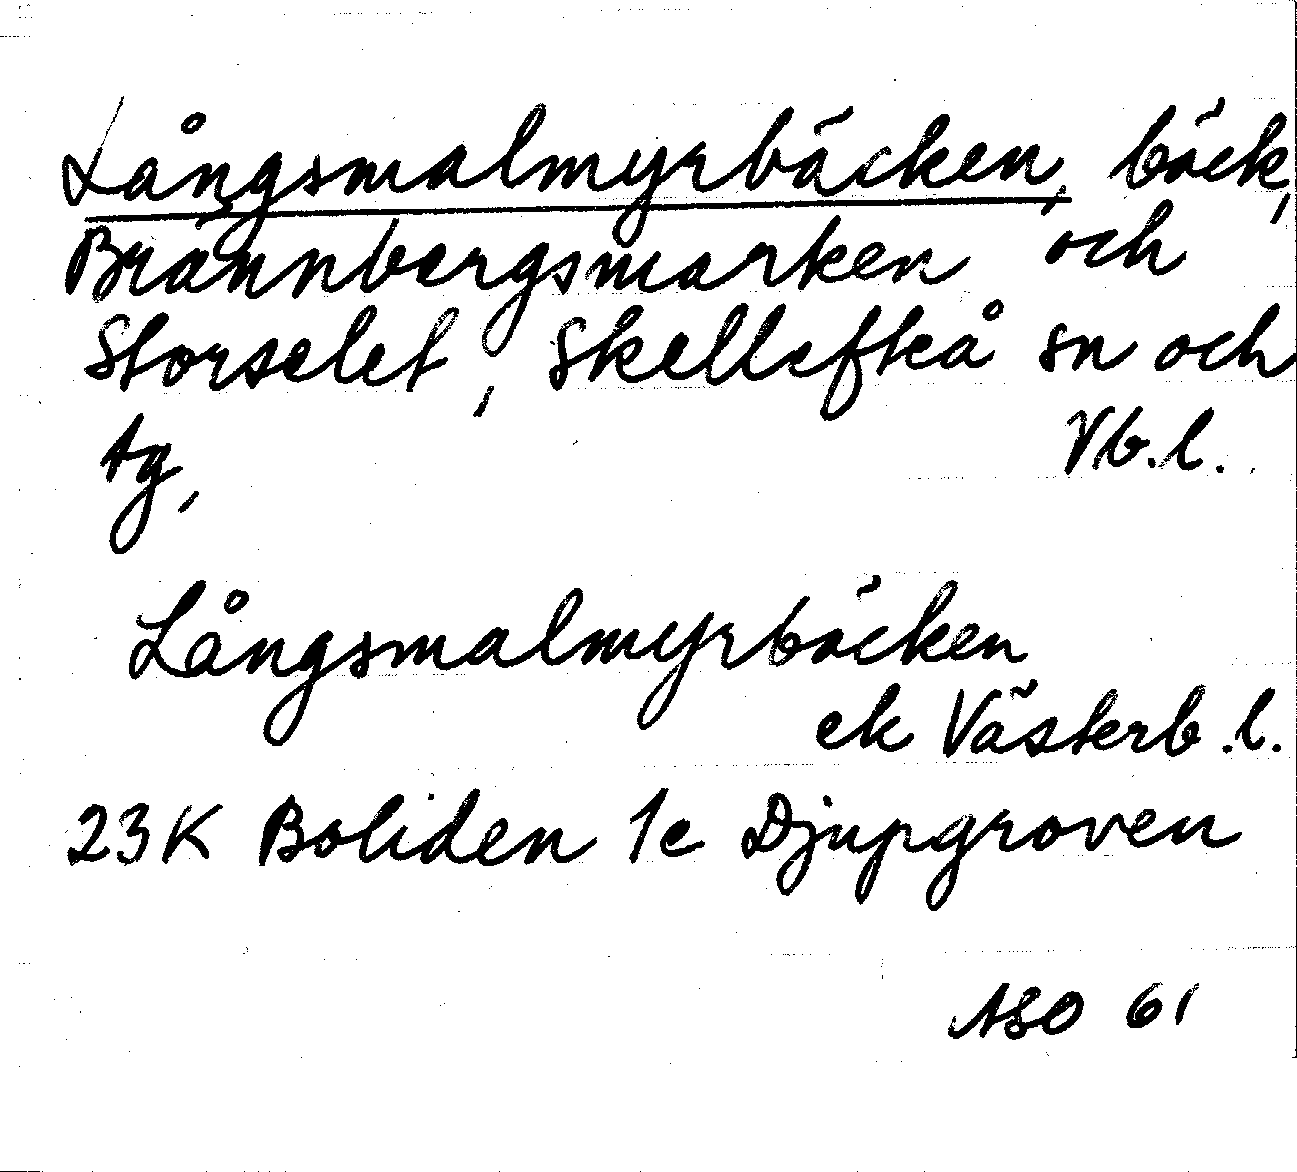 Långsmalmyrbäcken, bäck,
Brännbergsmarken och
Storselet, Skellefteå sn och
tg, Vb.l.
Långsmalmyrbäcken
ek Västerb.l.
23K Boliden 1e Djupgroven
ASO 61